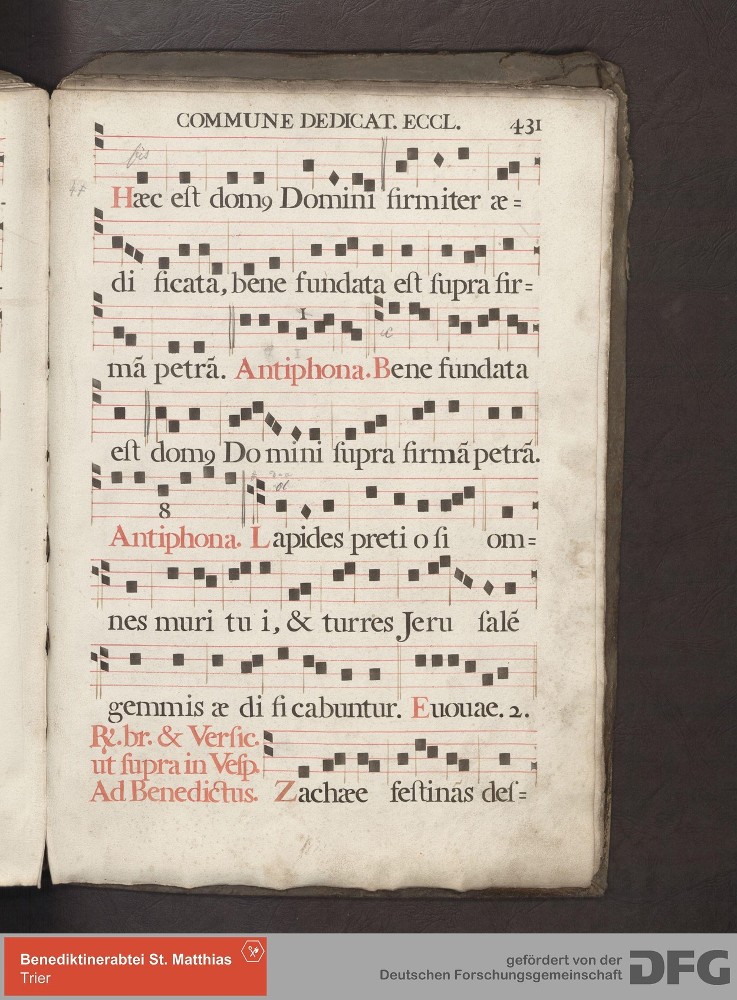 COMMUNE DEDICAT. ECCL. 431
Hæc eſt domꝯ Domini firmiter æ=
di ficata, bene fundata eſt ſupra fir=
mã petrã. Antiphona. Bene fundata
eſt domꝯ Do mini ſupra firmã petrã.
8
Antiphona. Lapides preti o ſi om=
nes muri tu i, & turres Jeru ſalẽ
gemmis æ di fi cabuntur. Euouae. 2.
℟. br. & Verſic.
ut ſupra in Veſp.
Ad Benedictus. Zachæe feſtinãs deſ=
Benediktinerabtei St. Matthias
Trier
gefördert von der
Deutschen Forschungsgemeinschaft
DFG